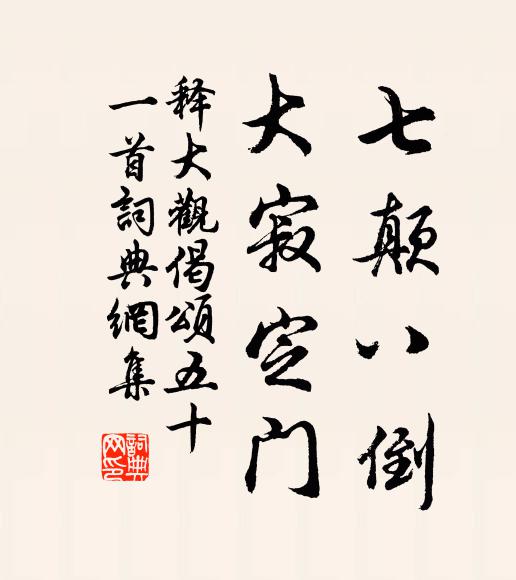 七颠八倒
大寂定门
释大觀偈頌五十
一首詞典網集
詞典网印